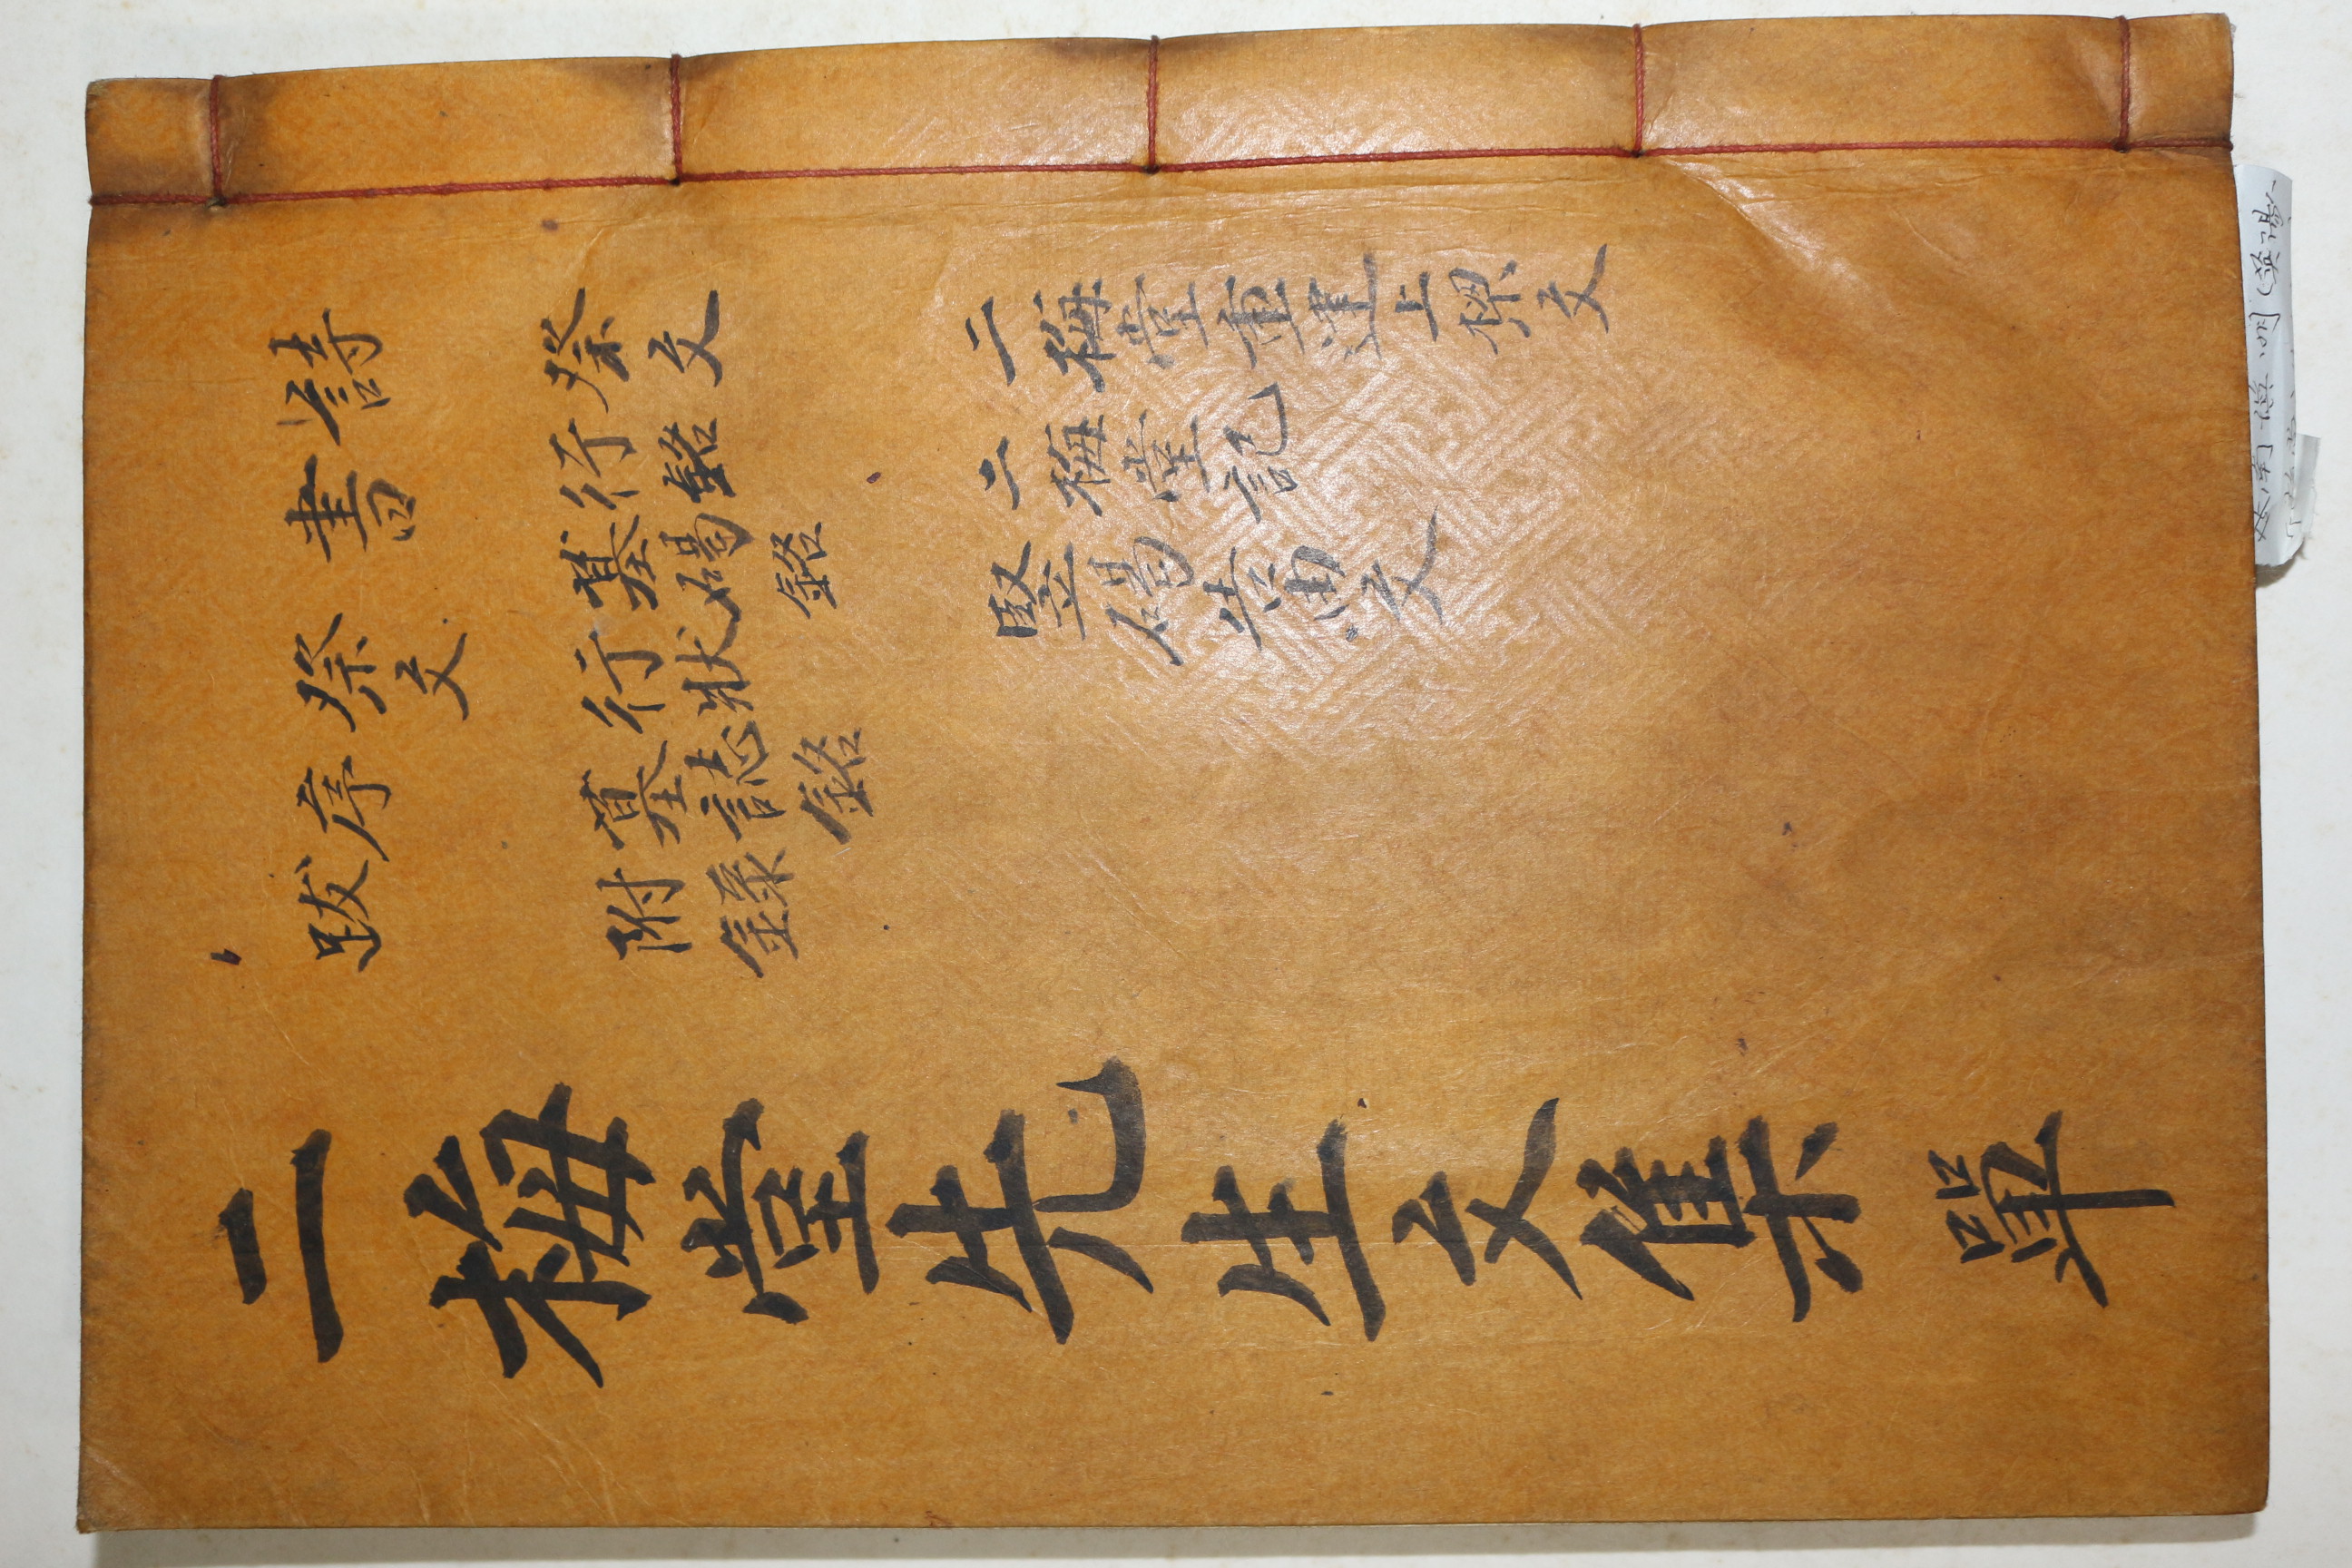 詩
書
祭文
序
跋
祭文
行銘
墓碣銘
行狀
墓誌銘
附錄
二梅堂重建上樑文
二梅堂記
竪碣告由文
二梅堂先生文集 單
南 明(英陽人